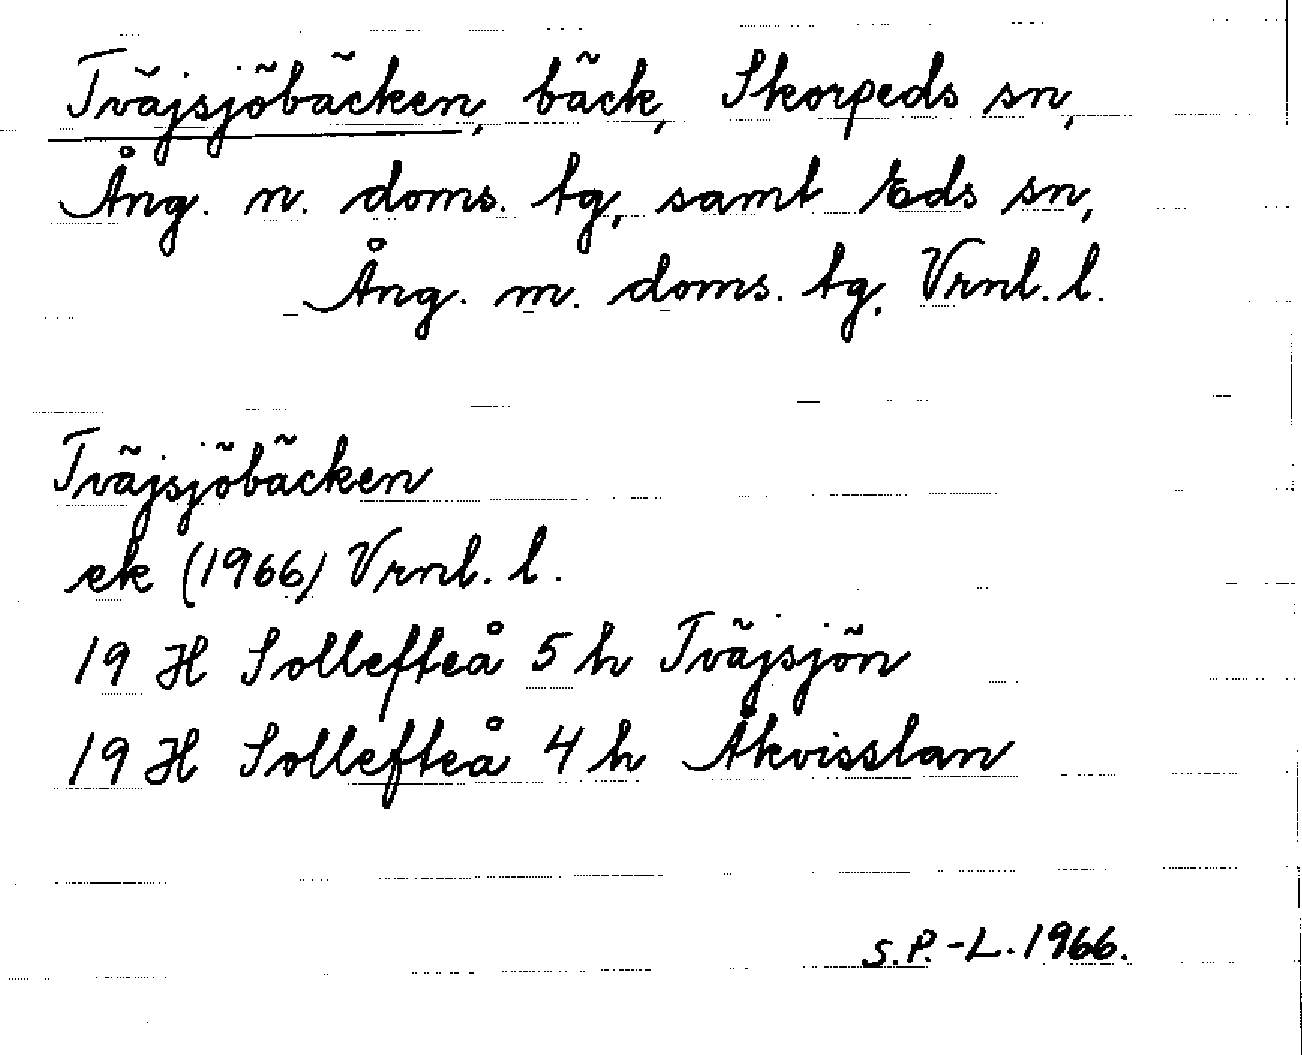 Tväjsjöbäcken, bäck, Skorpeds sn,
Ång. n. doms. tg, samt Eds sn,
Ång. m. doms. tg. Vrnl. l.
Tväjsjöbäcken
ek (1966) Vrnl. l.
19 H Sollefteå 5 h Tväjsjön
19 H Sollefteå 4 h Åkvisslan
S.P.-L. 1966.